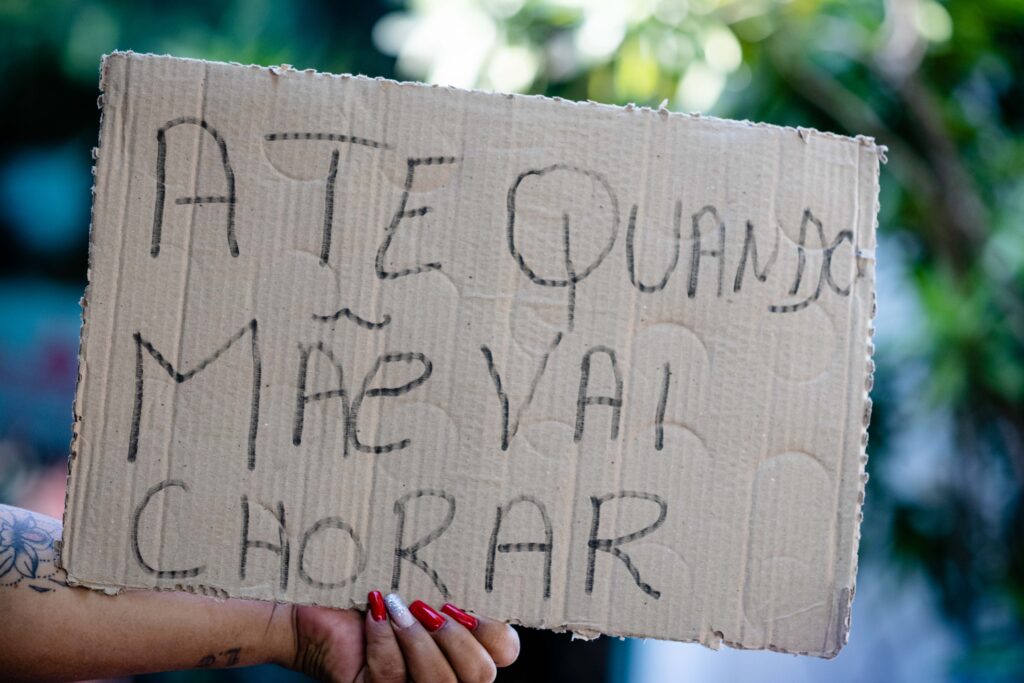 ATE QUANDO
MÃE VAI
CHORAR